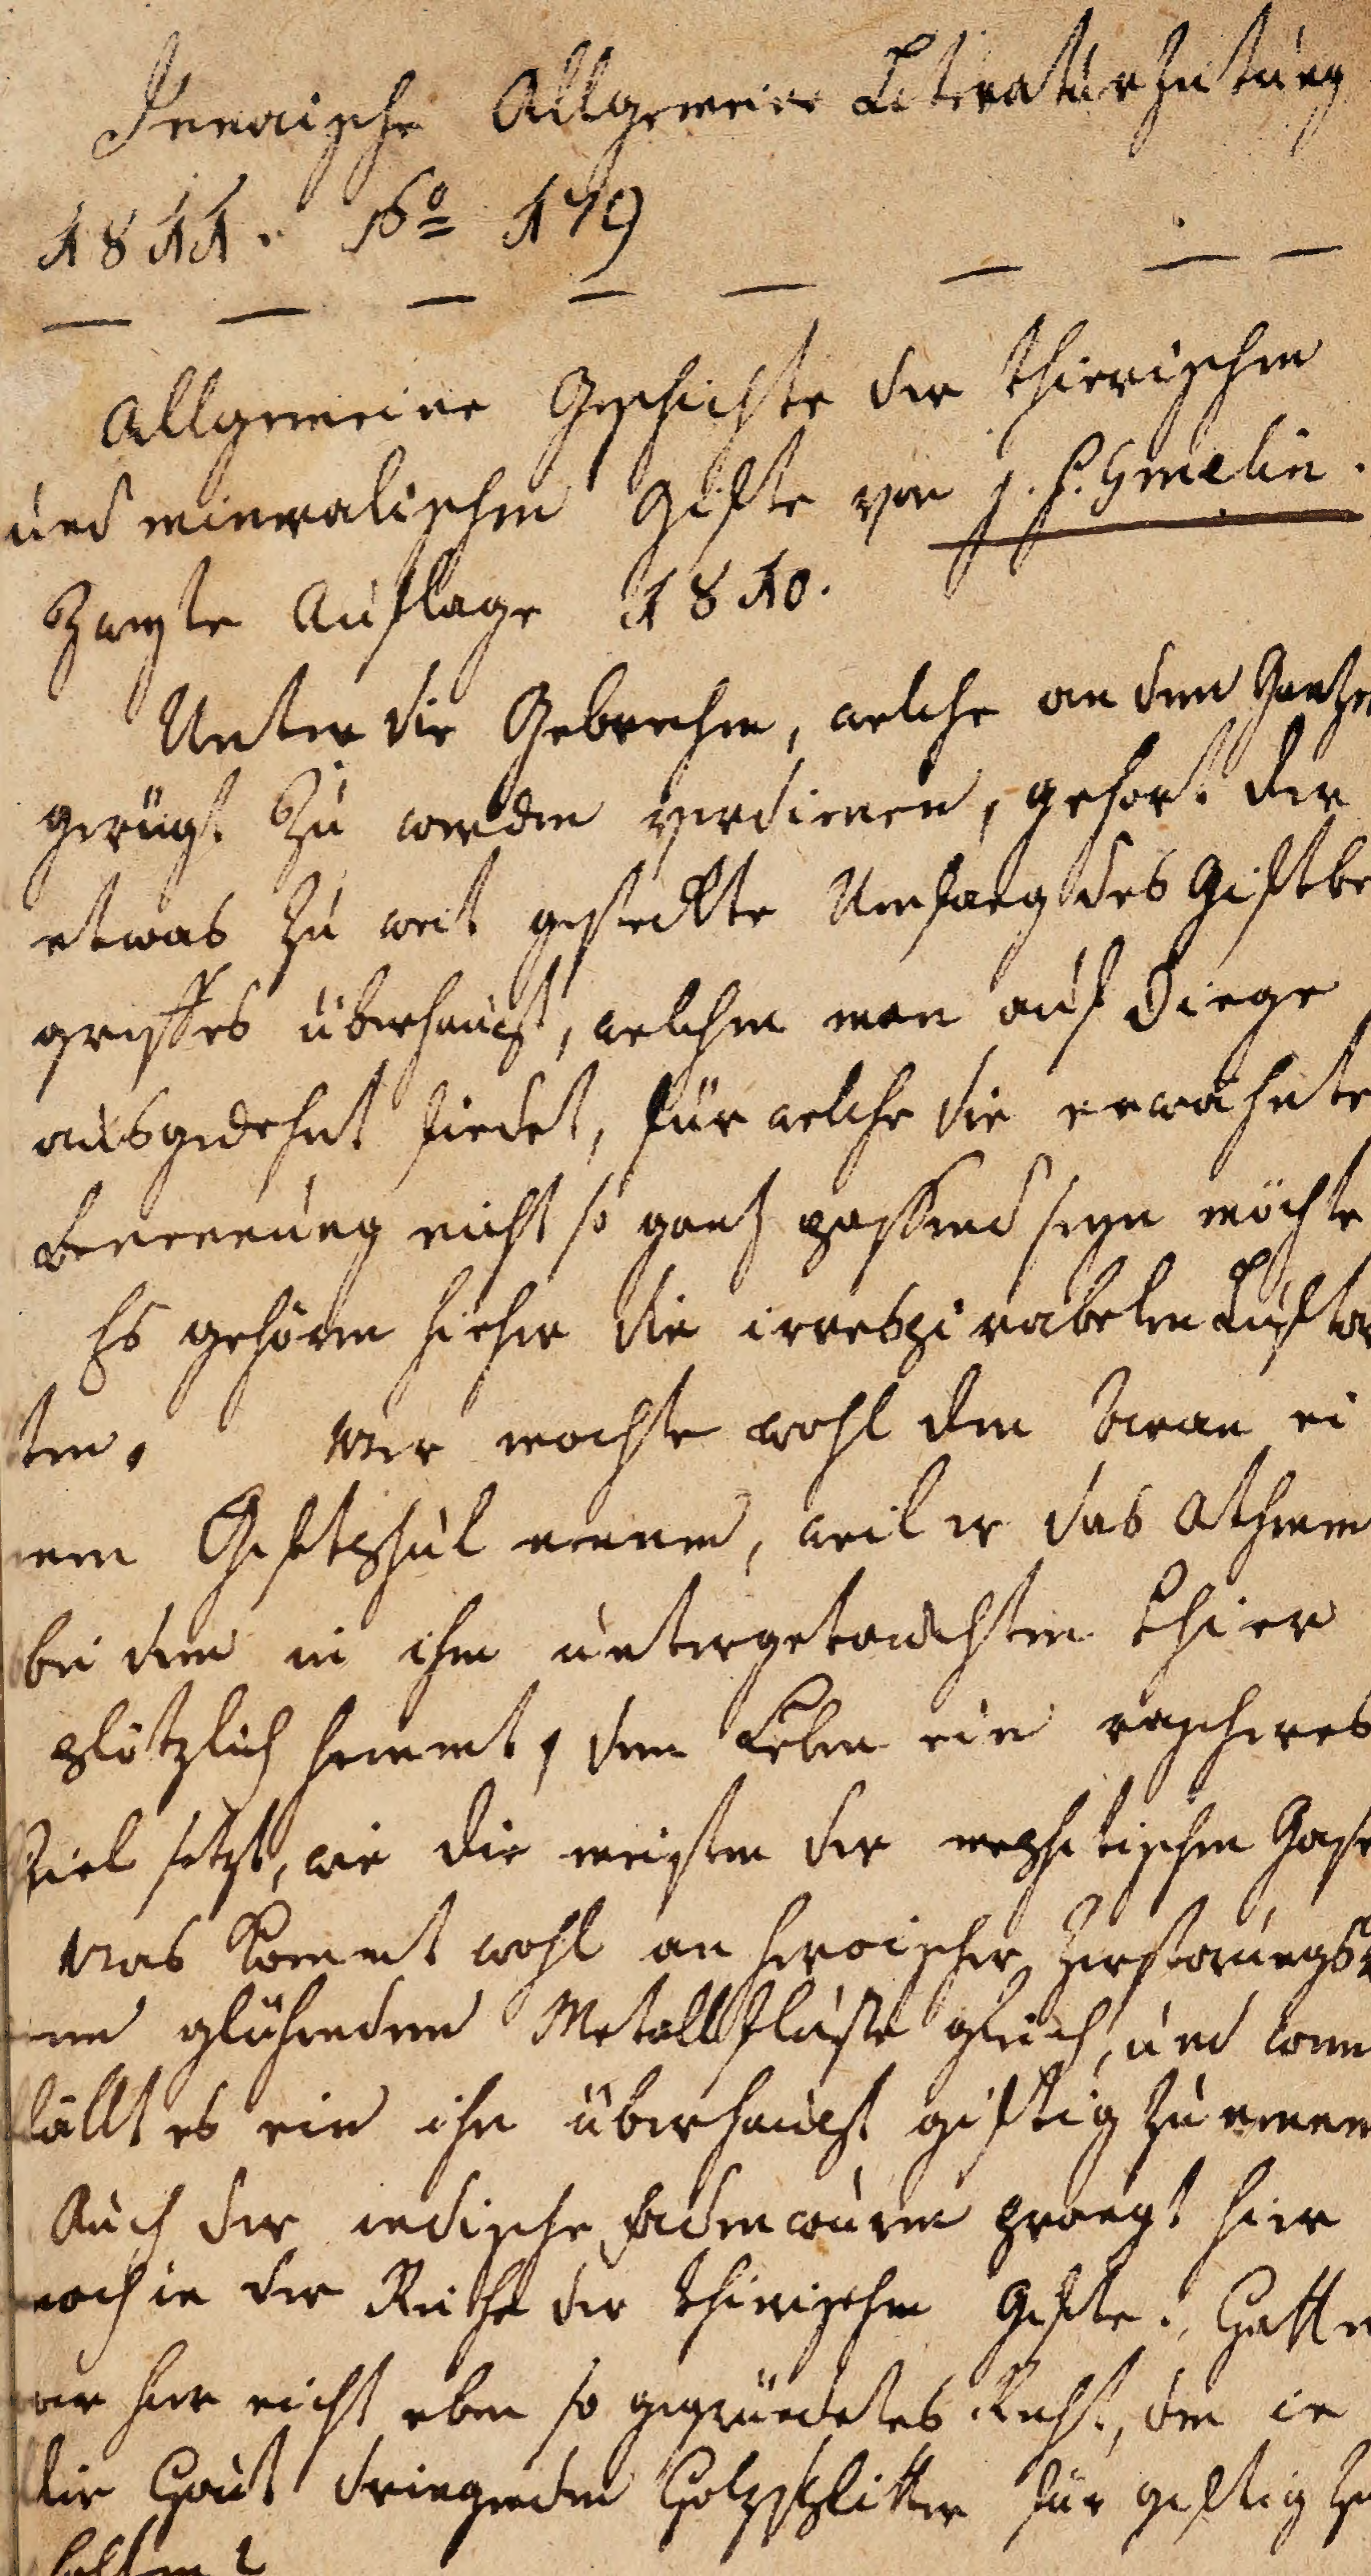 Jenaische Allgemeine Literaturzeitung
1811. No 179
Allgemeine Geschichte der thierischen
und mineralischen Gifte von J. F. Gmelin.
Zweyte Auflage 1810.
Unter die Gebrechen, welche an dem Gantzen
gerügt zu werden verdienen, gehört der
etwas zu weit gesteckte Umfang des Giftbe
griffes überhaupt, welchen man auf Dinge
ausgedehnt findet, für welche die erwähnte
Benennung nicht so gantz passend seyn möchte
Es gehören hieher die irrespirabelen Luftar
ten. Wer mochte wohl den Ocean ei
nen Giftpful nennen, weil er das Athmen
bei dem in ihm untergetauchten Thier
plötzlich hemmt, dem Leben ein rascheres
Ziel setzt, wie die meisten der mephitischen Gase
Was kommt wohl an heroischer Zerstörungskr
em glühenden Metallfluße gleich, und wem
fällt es ein ihn überhaupt giftig zu nennen
Auch der indische Fadenwurm prangt hier
noch in der Reihe der thierischen Gifte. Hatte
er hier nicht eben so gegründetes Recht, den in
die Haut dringenden Holzsplitter für giftig zu
halten?